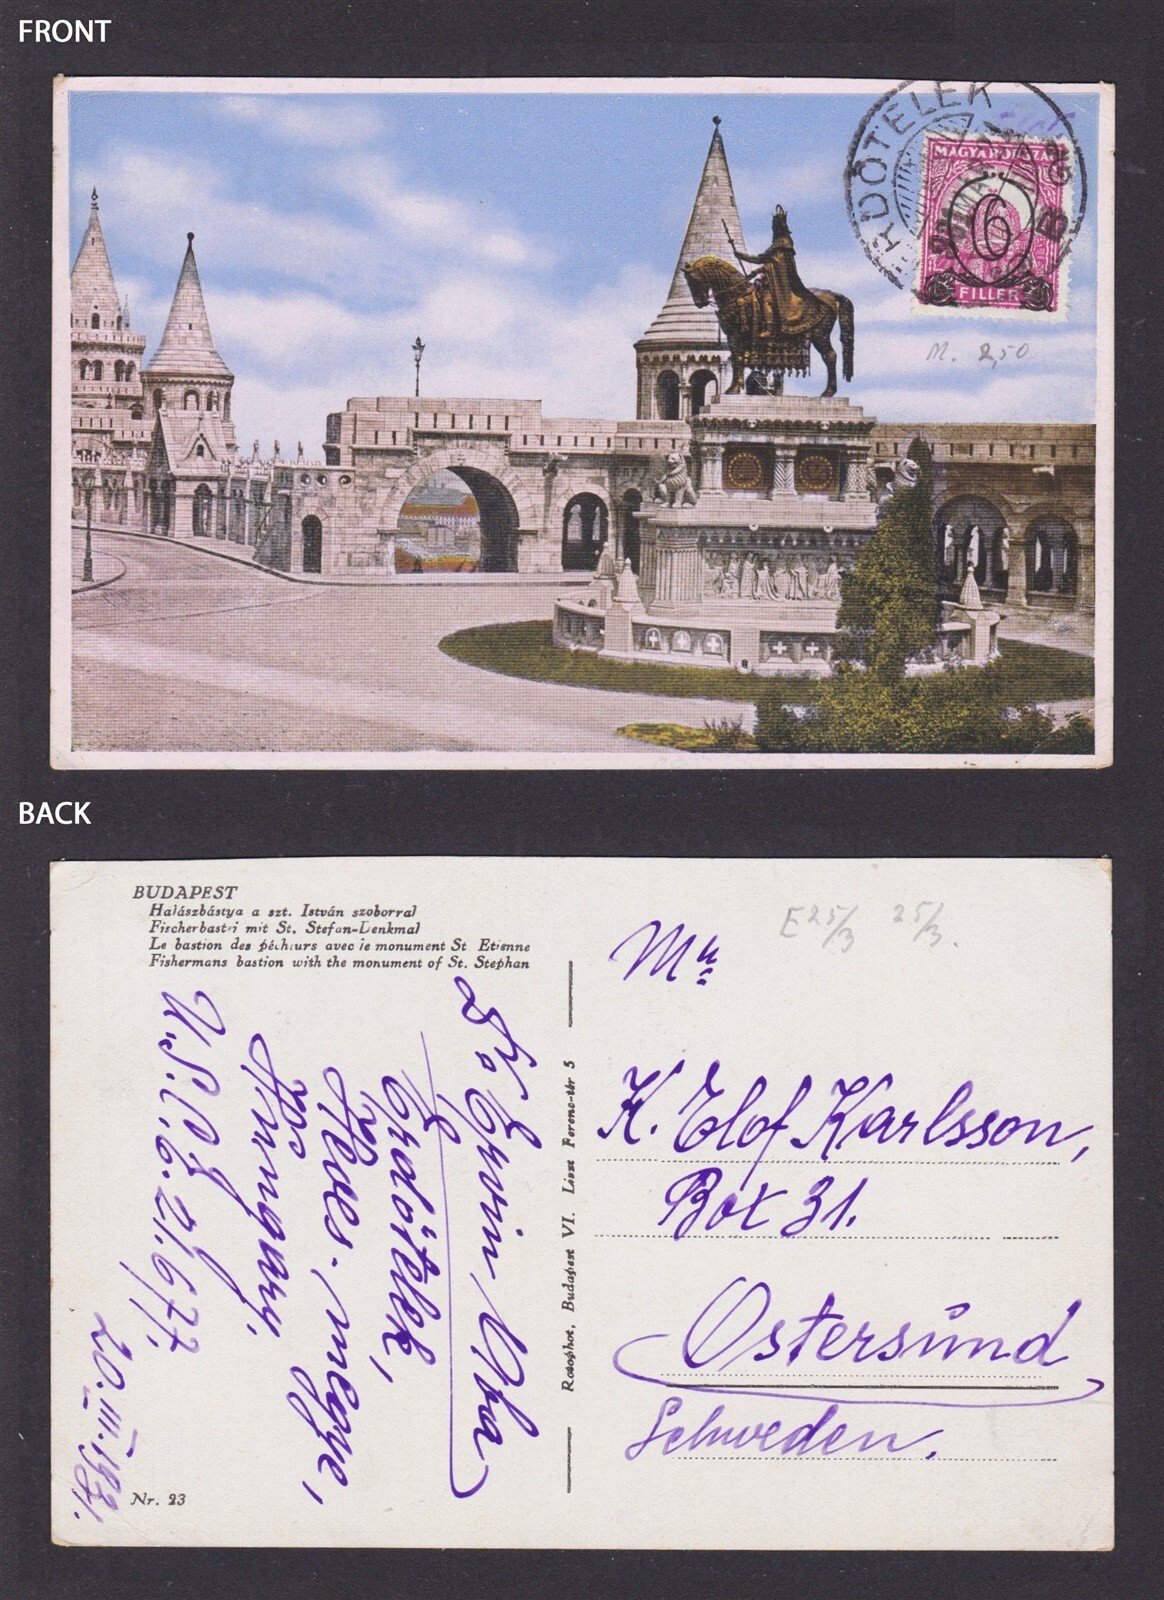 FRONT
ERDŐTELEK
MAGYARORSZÁG
6
FILLER
M. 2,50
BACK
BUDAPEST
Halászbástya a szt. István szoborral
Fischerbastei mit St. Stefan-Denkmal
Le bastion des pécheurs avec le monument St Etienne
Fishermans bastion with the monument of St. Stephan
E 25/3 25/3.
Mr
K. Elof Karlsson,
Box 31.
Östersund
Schweden.
Rotophot, Budapest VI. Liszt Ferenc-tér 5
Dr. Ervin
Erdőtelek,
Heves-megye,
Hungary,
20.III.1931.
Nr. 23